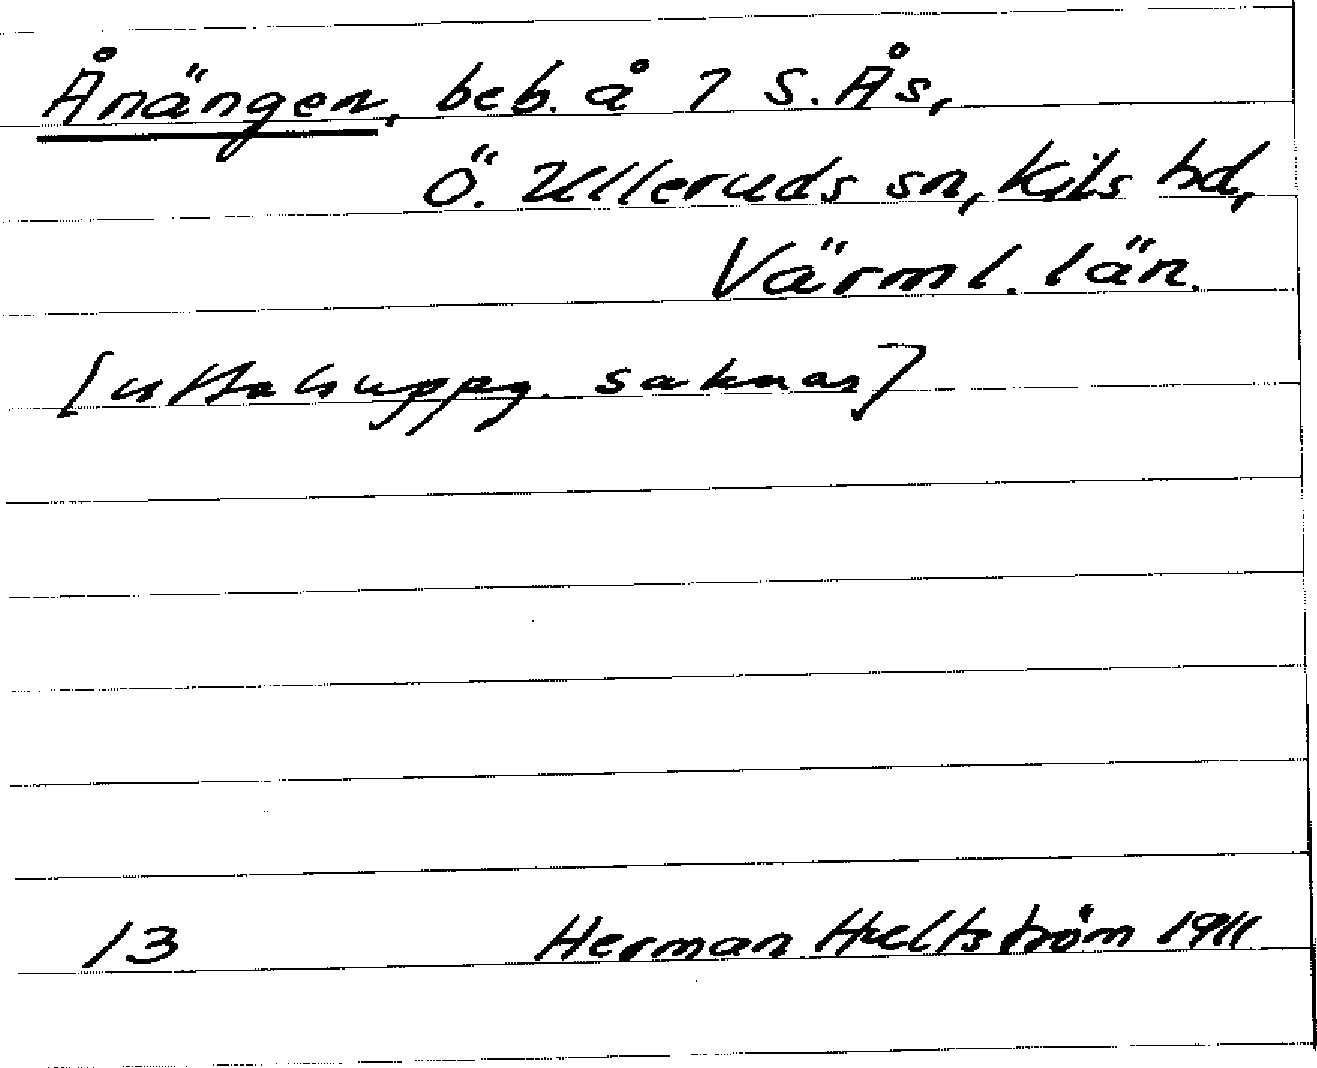 Ånängen, beb. å 7 S. Ås,
Ö. Ulleruds sn, Kils hd,
Värml. län.
[uttalsuppg. saknas]
13 Herman Hultström 1911